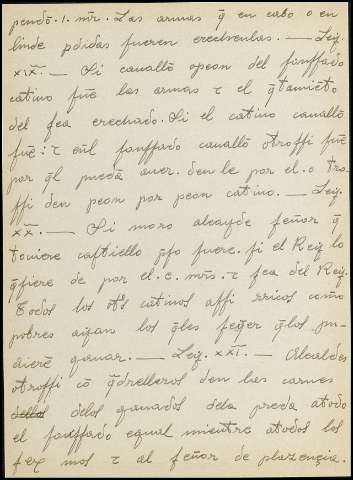 pendō .1. mr̄. Las armas q̄ en cabo o en
linde pdidas fueren erecbreulas. — Ley.
xıx̄. — Si cauallō opeon del fonssado
catiuo fuē las armas τ el q̄tamieto
del sea erechado. Si el catiuo cauallō
fuē: τ enl fonssado cauallō otrossi fuē
por q̄l puedā auer. den le por el. o tro
ssi den peon por peon catiuo. — Ley.
xx̄. — Si moro alcayde señor q̄
touiere castiello pso fuere. si el Rey lo
q̄siere de por el .c. mr̄s. τ sea del Rey.
Todos los ots catiuos assi rricos como
pobres ayan los q̄les q̄los pu-
dierē ganar. — Ley. xxı̄. — Alcaldes
otrossi cō q̄drelleros den las carnes
delos ganados dela preda atodo
el fonssado egual mientre atodos los
sex mos τ al señor de plazençia.